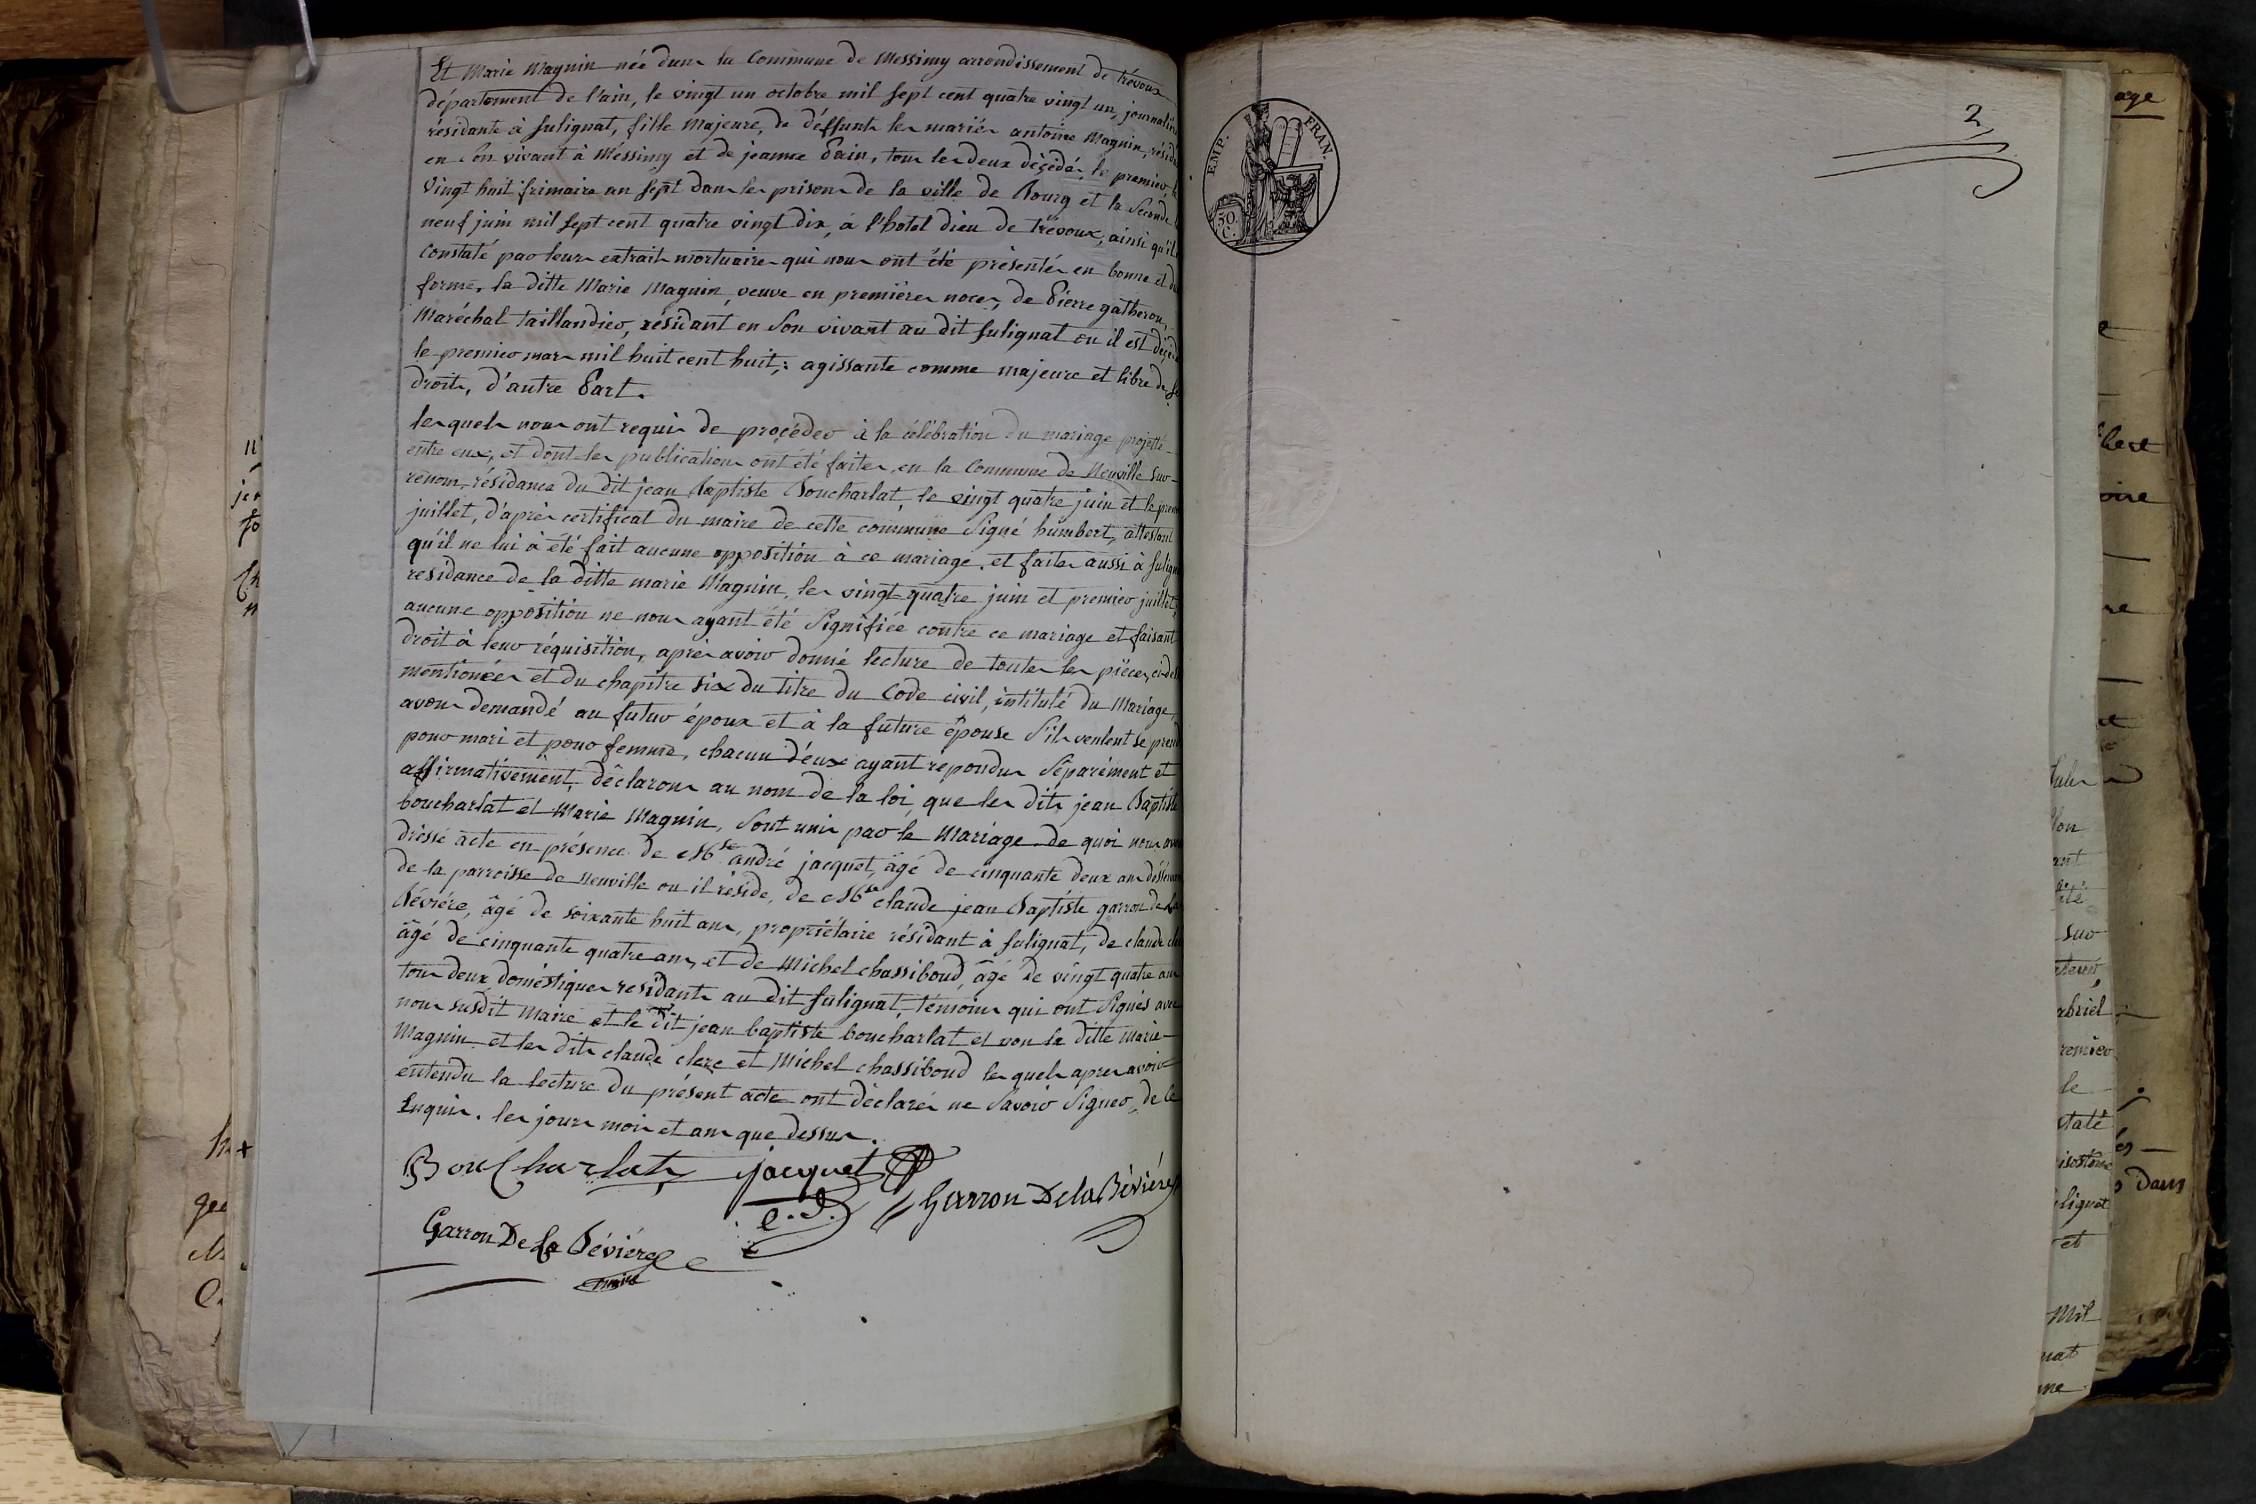 Et Marie Magnin née dans la Commune de Messimy arrondissement de trévoux
département de l'ain, le vingt un octobre mil sept cent quatre vingt un, journalière
résidante à sulignat, fille Majeure, de déffunts les mariés antoine Magnin, résida
en son vivant à Messimy et de jeanne Pain, tous les deux décédés, le premier, le
vingt huit frimaire an sept dans les prisons de la ville de Bourg et la seconde le
neuf juin mil sept cent quatre vingt dix, à l'hotel dieu de trévoux, ainsi qu'il
constaté par leurs extraits mortuaires qui nous ont été présentés en bonne et du
forme, la ditte Marie Magnin, veuve en premières noces, de Pierre gatheron,
Maréchal taillandier, résidant en son vivant au dit sulignat ou il est décédé
le premier mars mil huit cent huit,: agissante comme majeure et libre de se
droits, d'autre Part.
lesquels nous ont requis de procéder à la célébration du mariage projetté
entre eux, et dont les publications ont été faites, en la Commune de Neuville sur
renom, résidance du dit jean Baptiste Boucharlat, le vingt quatre juin et le prem
juillet, d'après certificat du maire de cette commune signé humbert, attestant
qu'il ne lui à été fait aucune opposition à ce mariage. et faites aussi à sulign
residance de la ditte marie Magnin, les vingt quatre juin et premier juillet,
aucune opposition ne nous ayant été signifiée contre ce mariage et faisant
droit à leur réquisition, après avoir donné lecture de toutes les pièces, ci des
mentionées et du chapitre six du titre du Code civil, intitulé du Mariage,
avons demandé au futur époux et à la future épouse s'ils veulent se prend
pour mari et pour femme, chacun d'eux ayant repondus séparément et
affirmativement, déclarons au nom de la loi, que les dits jean Baptiste
boucharlat et Marie Magnin, sont unis par le Mariage de quoi nous avon
dressé acte en présence de andré jacquet, âgé de cinquante deux ans
de la parroisse de Neuville ou il réside, de claude jean Baptiste garron de la
Bévière, âgé de soixante huit ans, propriétaire résidant à sulignat, de claude cle
âgé de cinquante quatre ans, et de Michel chassiboud, âgé de vingt quatre ans
tous deux doméstiques residants au dit sulignat, témoins qui ont signés avec
nous susdit Maire et le dit jean baptiste boucharlat et non la ditte Marie
Magnin et les dits claude clerc et Michel chassiboud lesquels apres avoir
entendu la lecture du présent acte ont déclarés ne savoir signer, de ce
Enquis. les jours mois et an que dessus.
Boucharlat jacquet
Garron De la Bévière
Garron De la Bévière
maire
EMP. FRAN.
50.
C.
2